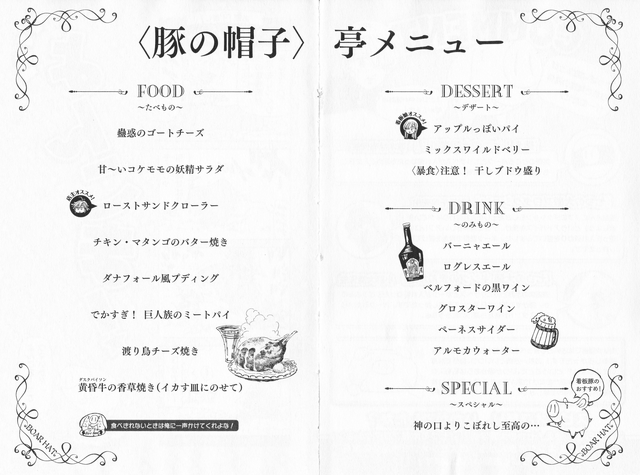 〈豚の帽子〉亭メニュー
FOOD
～たべもの～
蠱惑のゴートチーズ
甘～いコケモモの妖精サラダ
店主オススメ!
ローストサンドクローラー
チキン・マタンゴのバター焼き
ダナフォール風プディング
でかすぎ！ 巨人族のミートパイ
渡り鳥チーズ焼き
ダスクバイソン
黄昏牛の香草焼き(イカす皿にのせて)
食べきれないときは俺に一声かけてくれよな！
BOAR HAT
DESSERT
～デザート～
看板娘オススメ!
アップルっぽいパイ
ミックスワイルドベリー
〈暴食〉注意！ 干しブドウ盛り
DRINK
～のみもの～
バーニャエール
ログレスエール
ベルフォードの黒ワイン
グロスターワイン
ペーネスサイダー
アルモカウォーター
SPECIAL
～スペシャル～
看板豚の
おすすめ!
神の口よりこぼれし至高の…
BOAR HAT